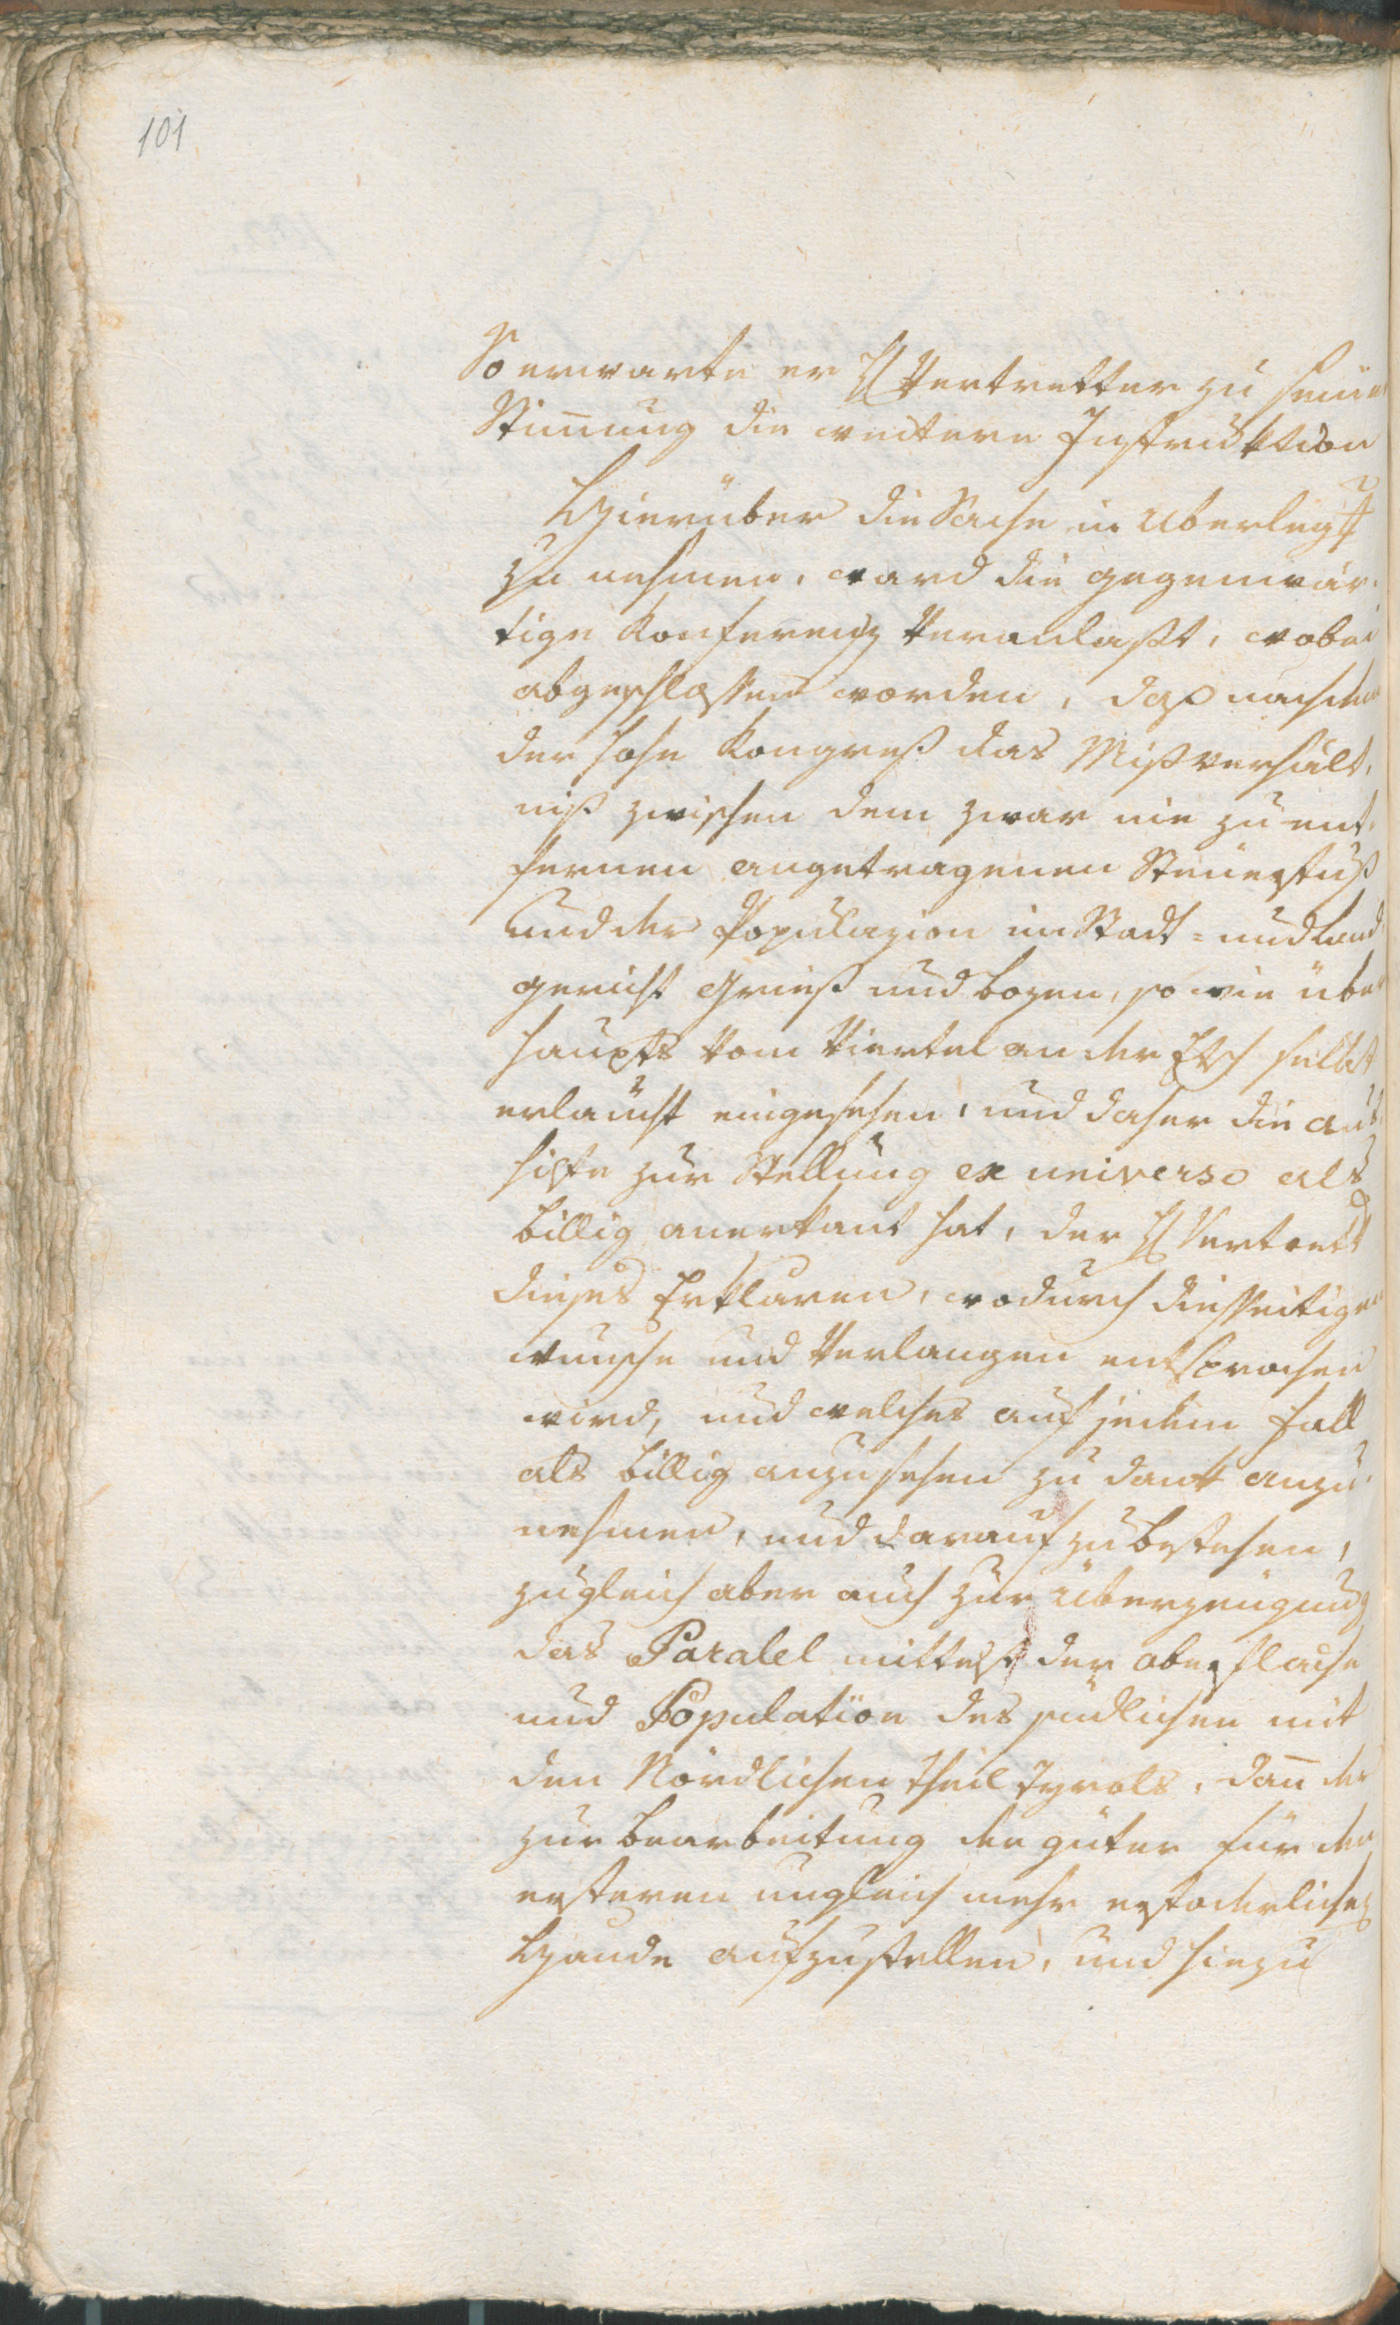 101
So erwarte er H Vertretter zu seiner
Stim̅ung die weitere Instruktion
Hierüber die Sache in Uberlegg
zu nehmen, ward die gegenwär-
tige Konferenz veranlaßt, wobei
abgeschlossen worden, daß nachdem
der hohe Kongreß das Mißverhält-
niß zwischen dem zwar nie zu ent-
fernen angetragenen Steuerfuß
und der Populazion im Stadt- und Land-
gericht Grieß und Bozen, so wie über
haupts vom Viertel an der Etsch selbst
erlaucht eingesehen, und daher die aus-
hilfe zur Stellung ex universo als
billig anerkant hat, der H Vertrett
dieses Erklaren, wodurch diesseitigen
wunsche und Verlangen entsprochen
wird, und welches auf jeden Fall
als billig anzusehen zu dank anzu-
nehmen, und darauf zu bestehen,
zugleich aber auch zur Uberzeugung
das Paralel mittelst der oberflache
und Population des südlichen mit
den Nördlichen theil Tyrols, dan̅ der
zur bearbeitung der güter für den
ersteren ungleich mehr erfoderlichen
Hände aufzustellen, und hiezu